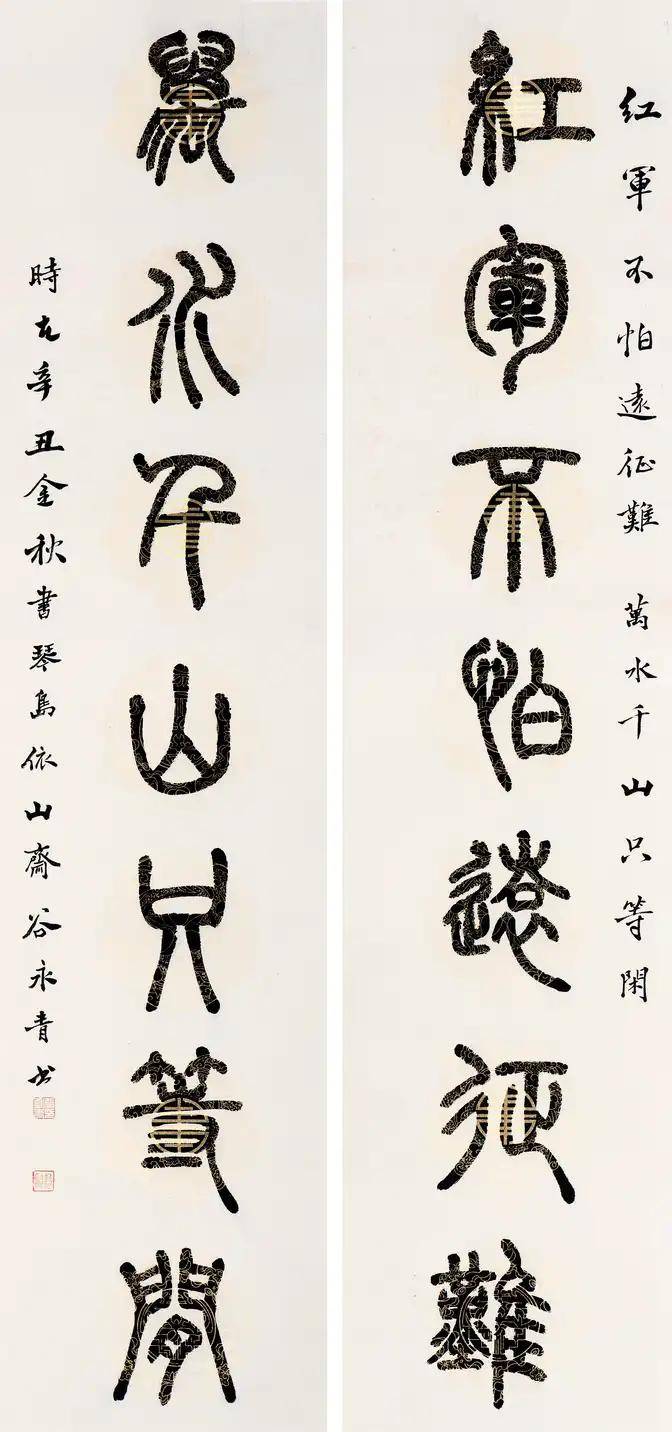 红軍不怕遠征難 萬水千山只等閑
紅軍不怕遠征難
萬水千山只等閑
時在辛丑金秋書琴島依山齋谷永青书